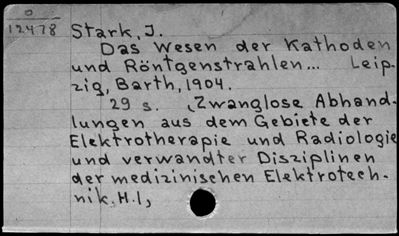 0
12478
Stark, J.
Das Wesen der Kathoden
und Röntgenstrahlen... Leip-
zig, Barth, 1904.
29 s. (Zwanglose Abhand-
lungen aus dem Gebiete der
Elektrotherapie und Radiologie
und verwandter Disziplinen
der medizinischen Elektrotech-
nik. H.1,)